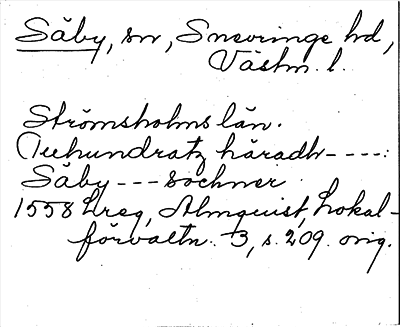 Säby, sn, Snevringe hd,
Västm. l.
Strömsholms län.
Tuhundratz häradh----:
Säby --- sochner
1558 Lreg, Almquist, Lokal-
förvaltn. 3, s. 209. orig.